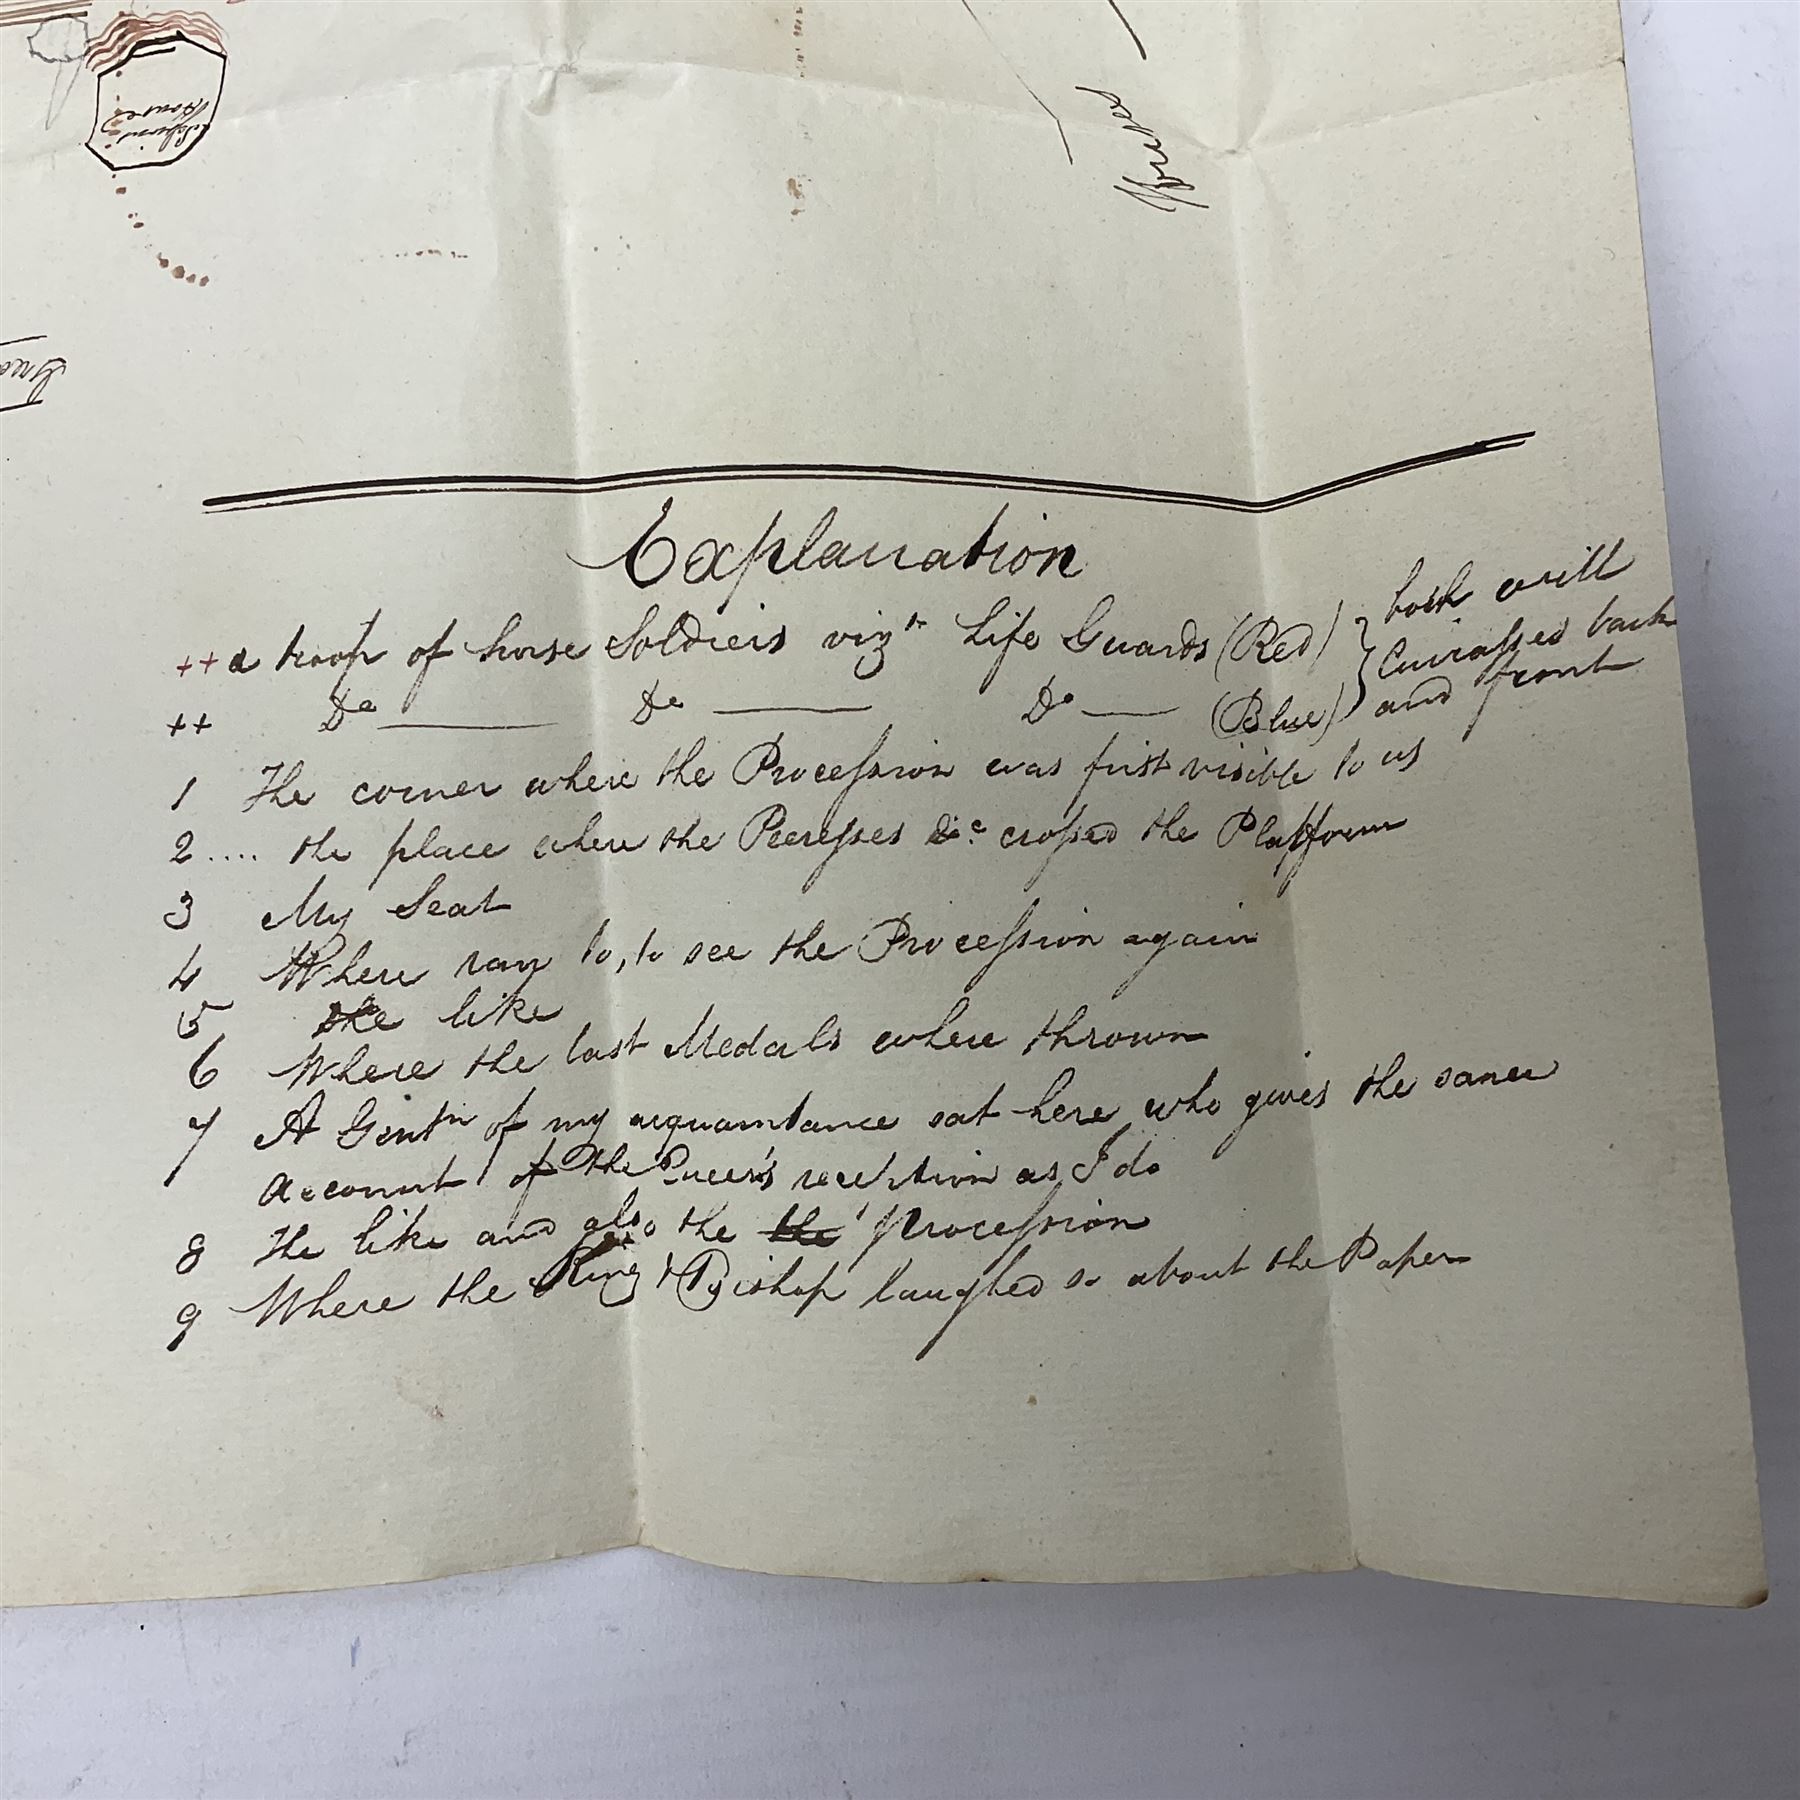 House
Houses
Explanation
++ a troop of horse Soldiers vizt. Life Guards (Red) } both with
++ Do ——— Do ——— Do —— (Blue) } Cuirasses back and front
1 The corner where the Procession was first visible to us
2 .... the place where the Peeresses &c crossed the Platform
3 My Seat
4 Where ran to, to see the Procession again
5 the like
6 Where the last Medals where thrown
7 A Gentn of my acquaintance sat here who gives the same
account of the Queen's reception as I do
8 the like and also the the procession
9 Where the King & Bishop laughed so about the Paper